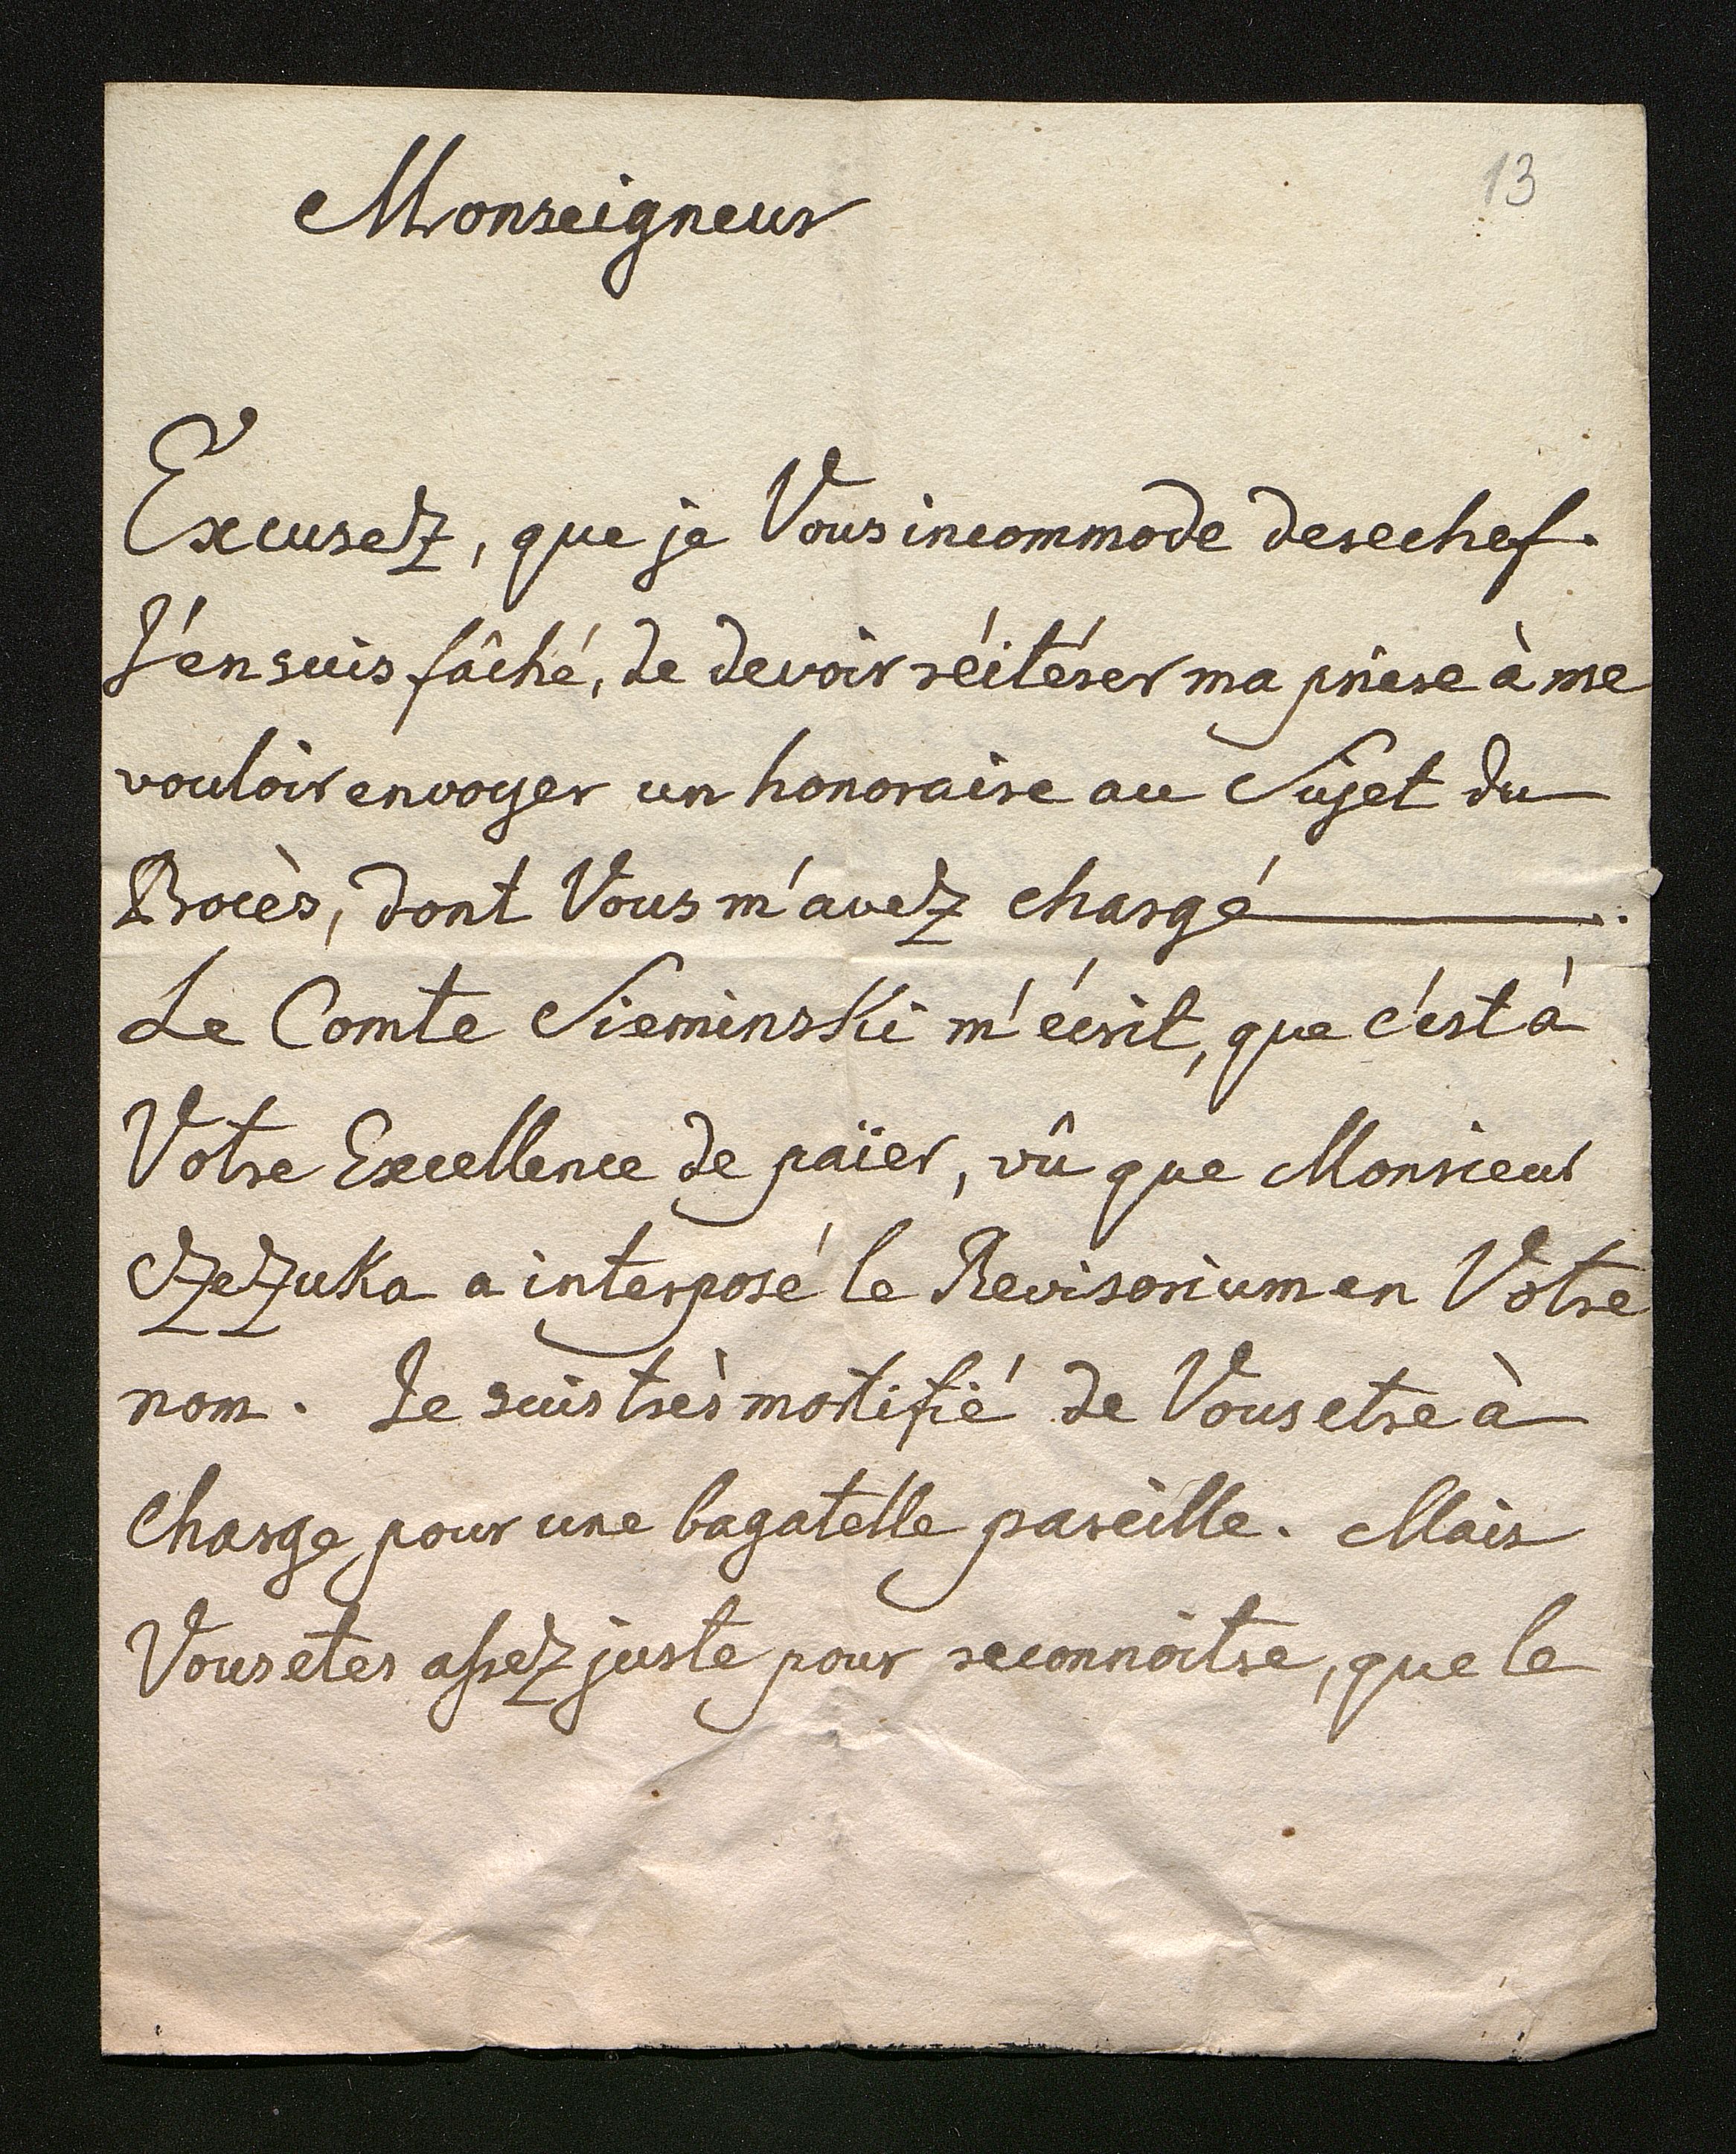 13
Monseigneur
Excusez, que je Vous incommode derechef.
J'en suis fâché, de devoir réitérer ma priere à me
vouloir envoyer un honoraire au Sujet du
Procès, dont Vous m'avez chargé ———.
Le Comte Sieminski m'écrit, que c'est à
Votre Excellence de païer, vû que Monsieur
CzeZuka a interposé le Revisorium en Votre
nom. Je suis très mortifié de Vous etre à
charge pour une bagatelle pareille. Mais
Vous etes assez juste pour reconnoitre, que le